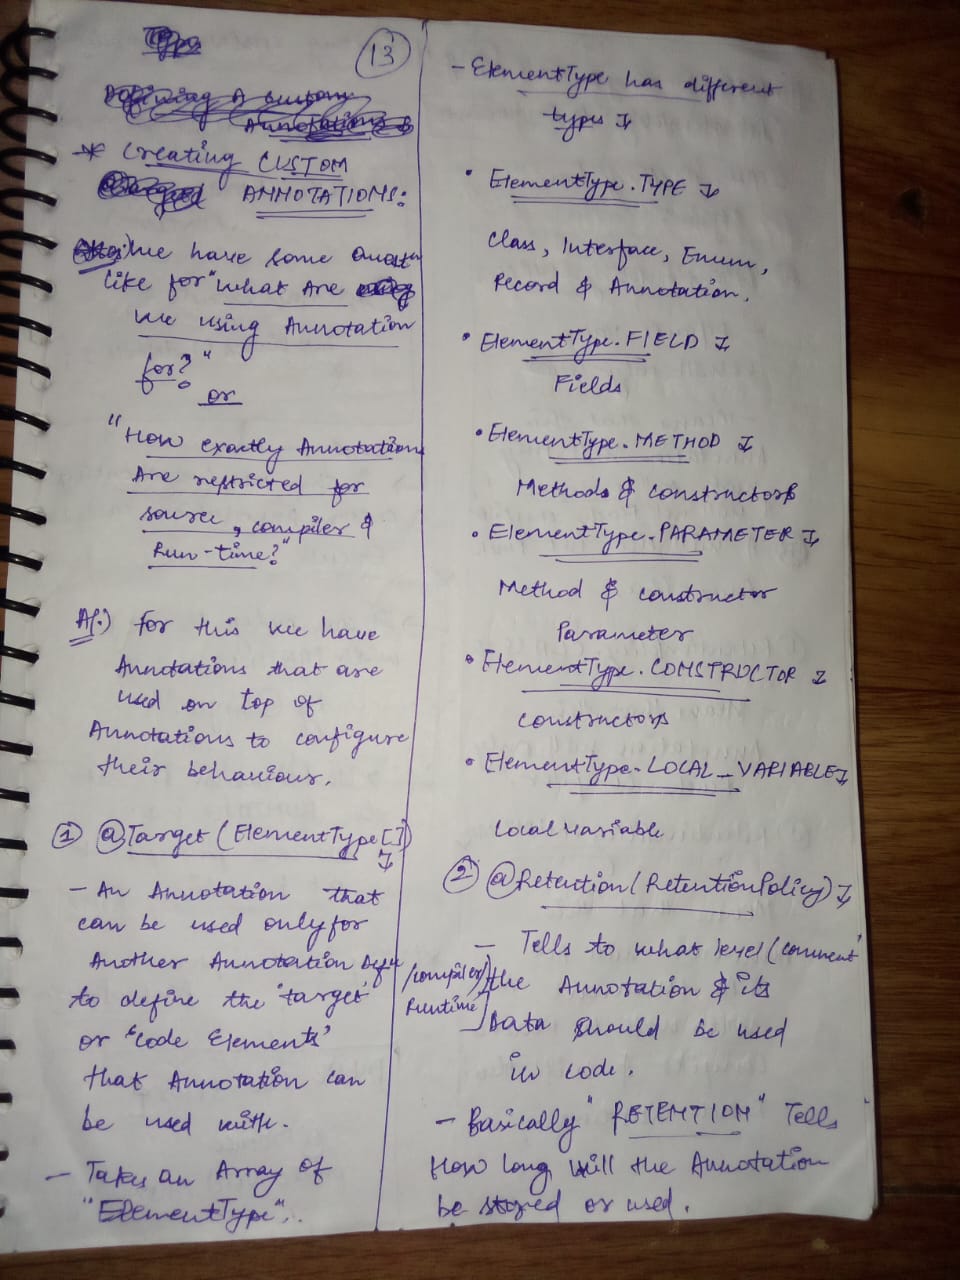 13
* Creating CUSTOM
ANNOTATIONS:
We have some
like for "what are
we using Annotation
for?"
or
"How exactly Annotations
Are restricted for
source, compiler &
Run-time?"
A.) for this we have
Annotations that are
used on top of
Annotations to configure
their behaviour.
① @Target (ElementType[])
- An Annotation that
can be used only for
Another Annotation
to define the 'target'
or 'Code Elements'
that Annotation can
be used with.
- Takes an Array of
"ElementType".
- ElementType has different
types
• ElementType.TYPE
Class, Interface, Enum,
Record & Annotation.
• ElementType.FIELD
Fields
• ElementType.METHOD
Methods & constructors
• ElementType.PARAMETER
Method & constructor
Parameter
• ElementType.CONSTRUCTOR
constructors
• ElementType.LOCAL_VARIABLE
Local variable
② @Retention(RetentionPolicy)
- Tells to what level (comment
/compiler/ the Annotation & its
Runtime) Data should be used
in code.
- Basically "RETENTION" Tells
How long will the Annotation
be stored or used.